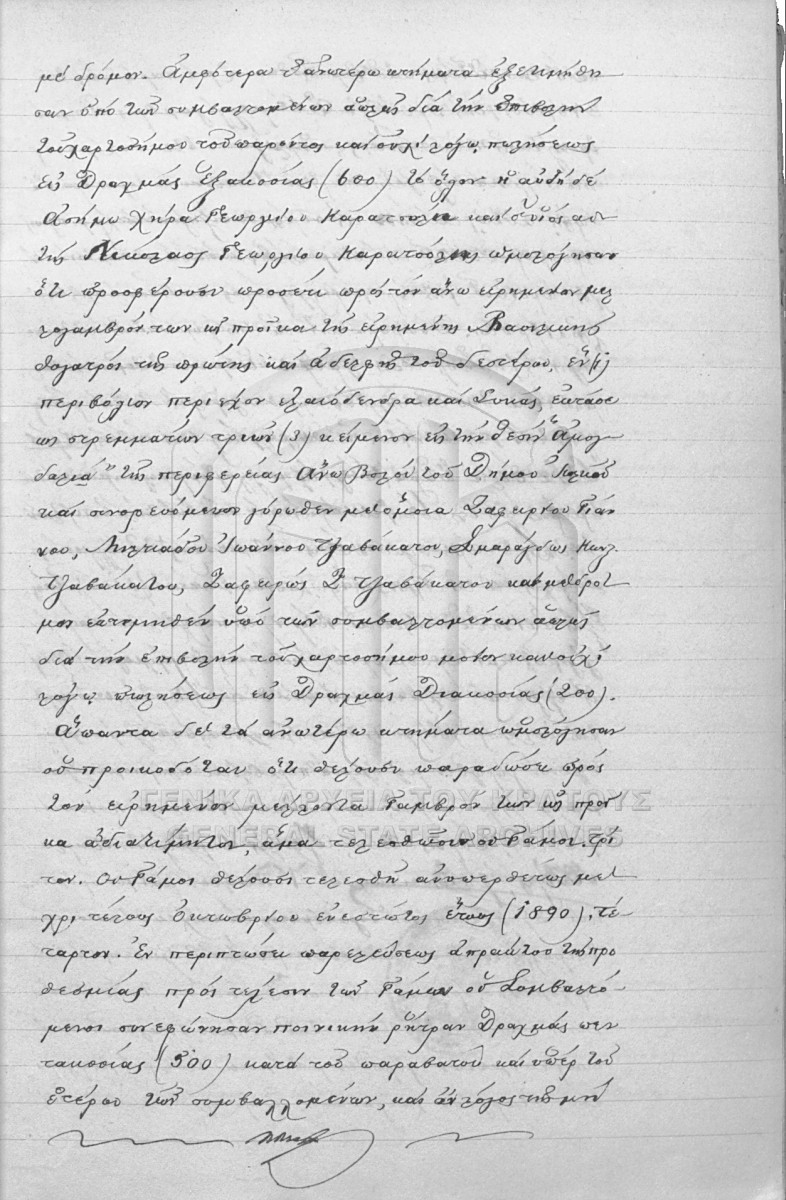 με δρόμον. Αμφότερα τ' ανωτέρω κτήματα εξετιμήθη
σαν υπό των συμβαλλομένων απλώς διά την επιβολήν
του χαρτοσήμου του παρόντος και ουχί λόγω πωλήσεως
εις Δραχμάς εξακοσίας (600) το όλον. Η αυτή δε
Ασήμω χήρα Γεωργίου Καρατσόλη και ο υιός αυ
της Νικόλαος Γεωργίου Καρατσόλης ωμολόγησαν
ότι προσφέρουσι προσέτι προς τον άνω ειρημένον μελ
λόγαμβρόν των ως προίκα της ειρημένης Βασιλικής
θυγατρός της πρώτης και αδελφής του δευτέρου, εν (1)
περιβόλιον περιέχον ελαιόδενδρα και Συκάς, εκτάσε
ως στρεμμάτων τριών (3) κείμενον εις την θέσιν "Αμυγ
δαλιά" της περιφερείας Άνω Βόλου του Δήμου Ιωλκού
και συνορευόμενον γύρωθεν με όμοια Ζαφειρίου Γιάν
νου, Μιλτιάδου Ιωάννου Τζαβάκατου, Σμαράγδως Κων.
Τζαβάκατου, Ζαφειρώς Ζ Τζαβάκατου και με δρό
μον εκτιμηθέν υπό των συμβαλλομένων απλώς
διά την επιβολήν του χαρτοσήμου μόνον και ουχί
λόγω πωλήσεως εις Δραχμάς Διακοσίας (200).
Άπαντα δε τα ανωτέρω κτήματα ωμολόγησαν
οι προικοδόται ότι θέλουσι παραδώσει προς
τον ειρημένον μέλλοντα Γαμβρόν των ως προί
κα αδιατίμητον, άμα τελεσθώσιν οι Γάμοι. Τρί
τον. Οι Γάμοι θέλουσι τελεσθή ανυπερθέτως μέ
χρι τέλους Οκτωβρίου ενεστώτος έτους (1890). Τέ
ταρτον. Εν περιπτώσει παρελεύσεως απράκτου της προ
θεσμίας προς τέλεσιν των Γάμων οι Συμβαλλό
μενοι συνεφώνησαν ποινικήν ρήτραν Δραχμάς πεν
τακοσίας (500) κατά του παραβάτου και υπέρ του
ετέρου των συμβαλλομένων, και αν λόγος της μη
ΓΕΝΙΚΑ ΑΡΧΕΙΑ ΤΟΥ ΚΡΑΤΟΥΣ
GENERAL STATE ARCHIVES